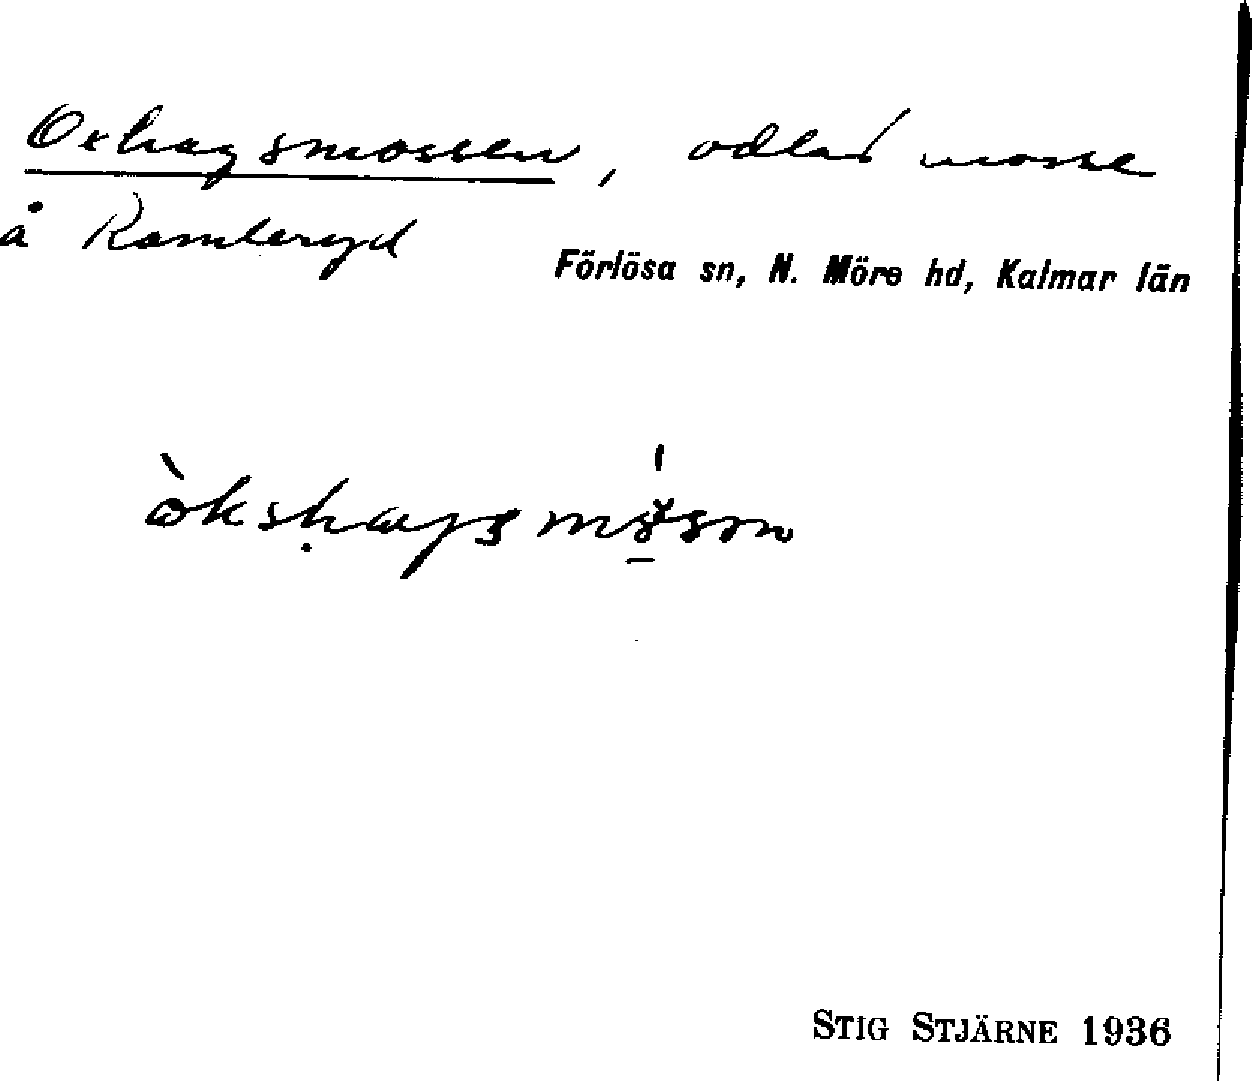 Oxhagsmossen, odlad mosse
å Ramleryd
Förlösa sn, N. Möre hd, Kalmar län
STIG STJÄRNE 1936